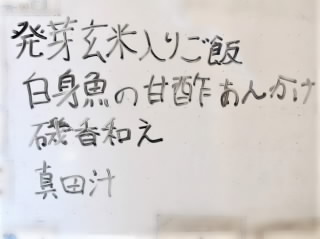 発芽玄米入りご飯
白身魚の甘酢あんかけ
磯香和え
真田汁